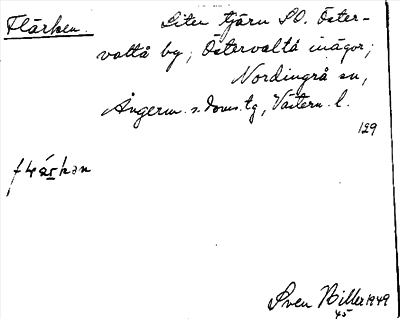 Flärken. Liten tjärn SO. Öster-
valtå by; Östervaltå inägor;
Nordingrå sn,
Ångerm. s. doms. tg, Västern. l.
129
Sven Biller 1949
45